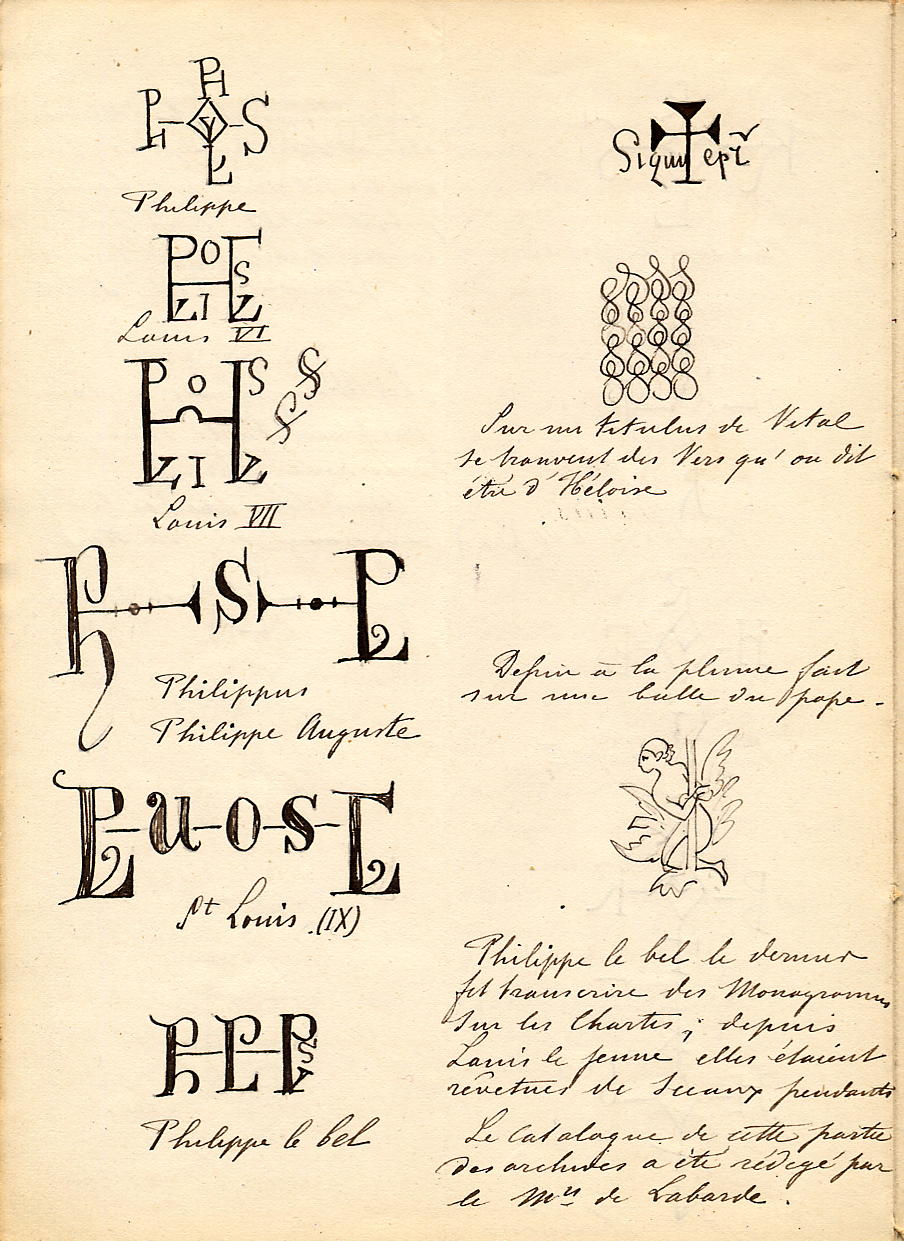 Philippe
Louis VI
Louis VII
Philippus
Philippe Auguste
St Louis (IX)
Philippe le bel
Sur un titulus de Vital
se trouvent des Vers qu' on dit
être d' Héloise
Dessin à la plume fait
sur une bulle du pape.
Philippe le bel le dernier
fit transcrire des Monogrammes
sur les Chartes; depuis
Louis le jeune elles étaient
revêtues de Sceaux pendants
Le Catalogue de cette partie
des archives a été rédigé par
le Mis de Laborde.